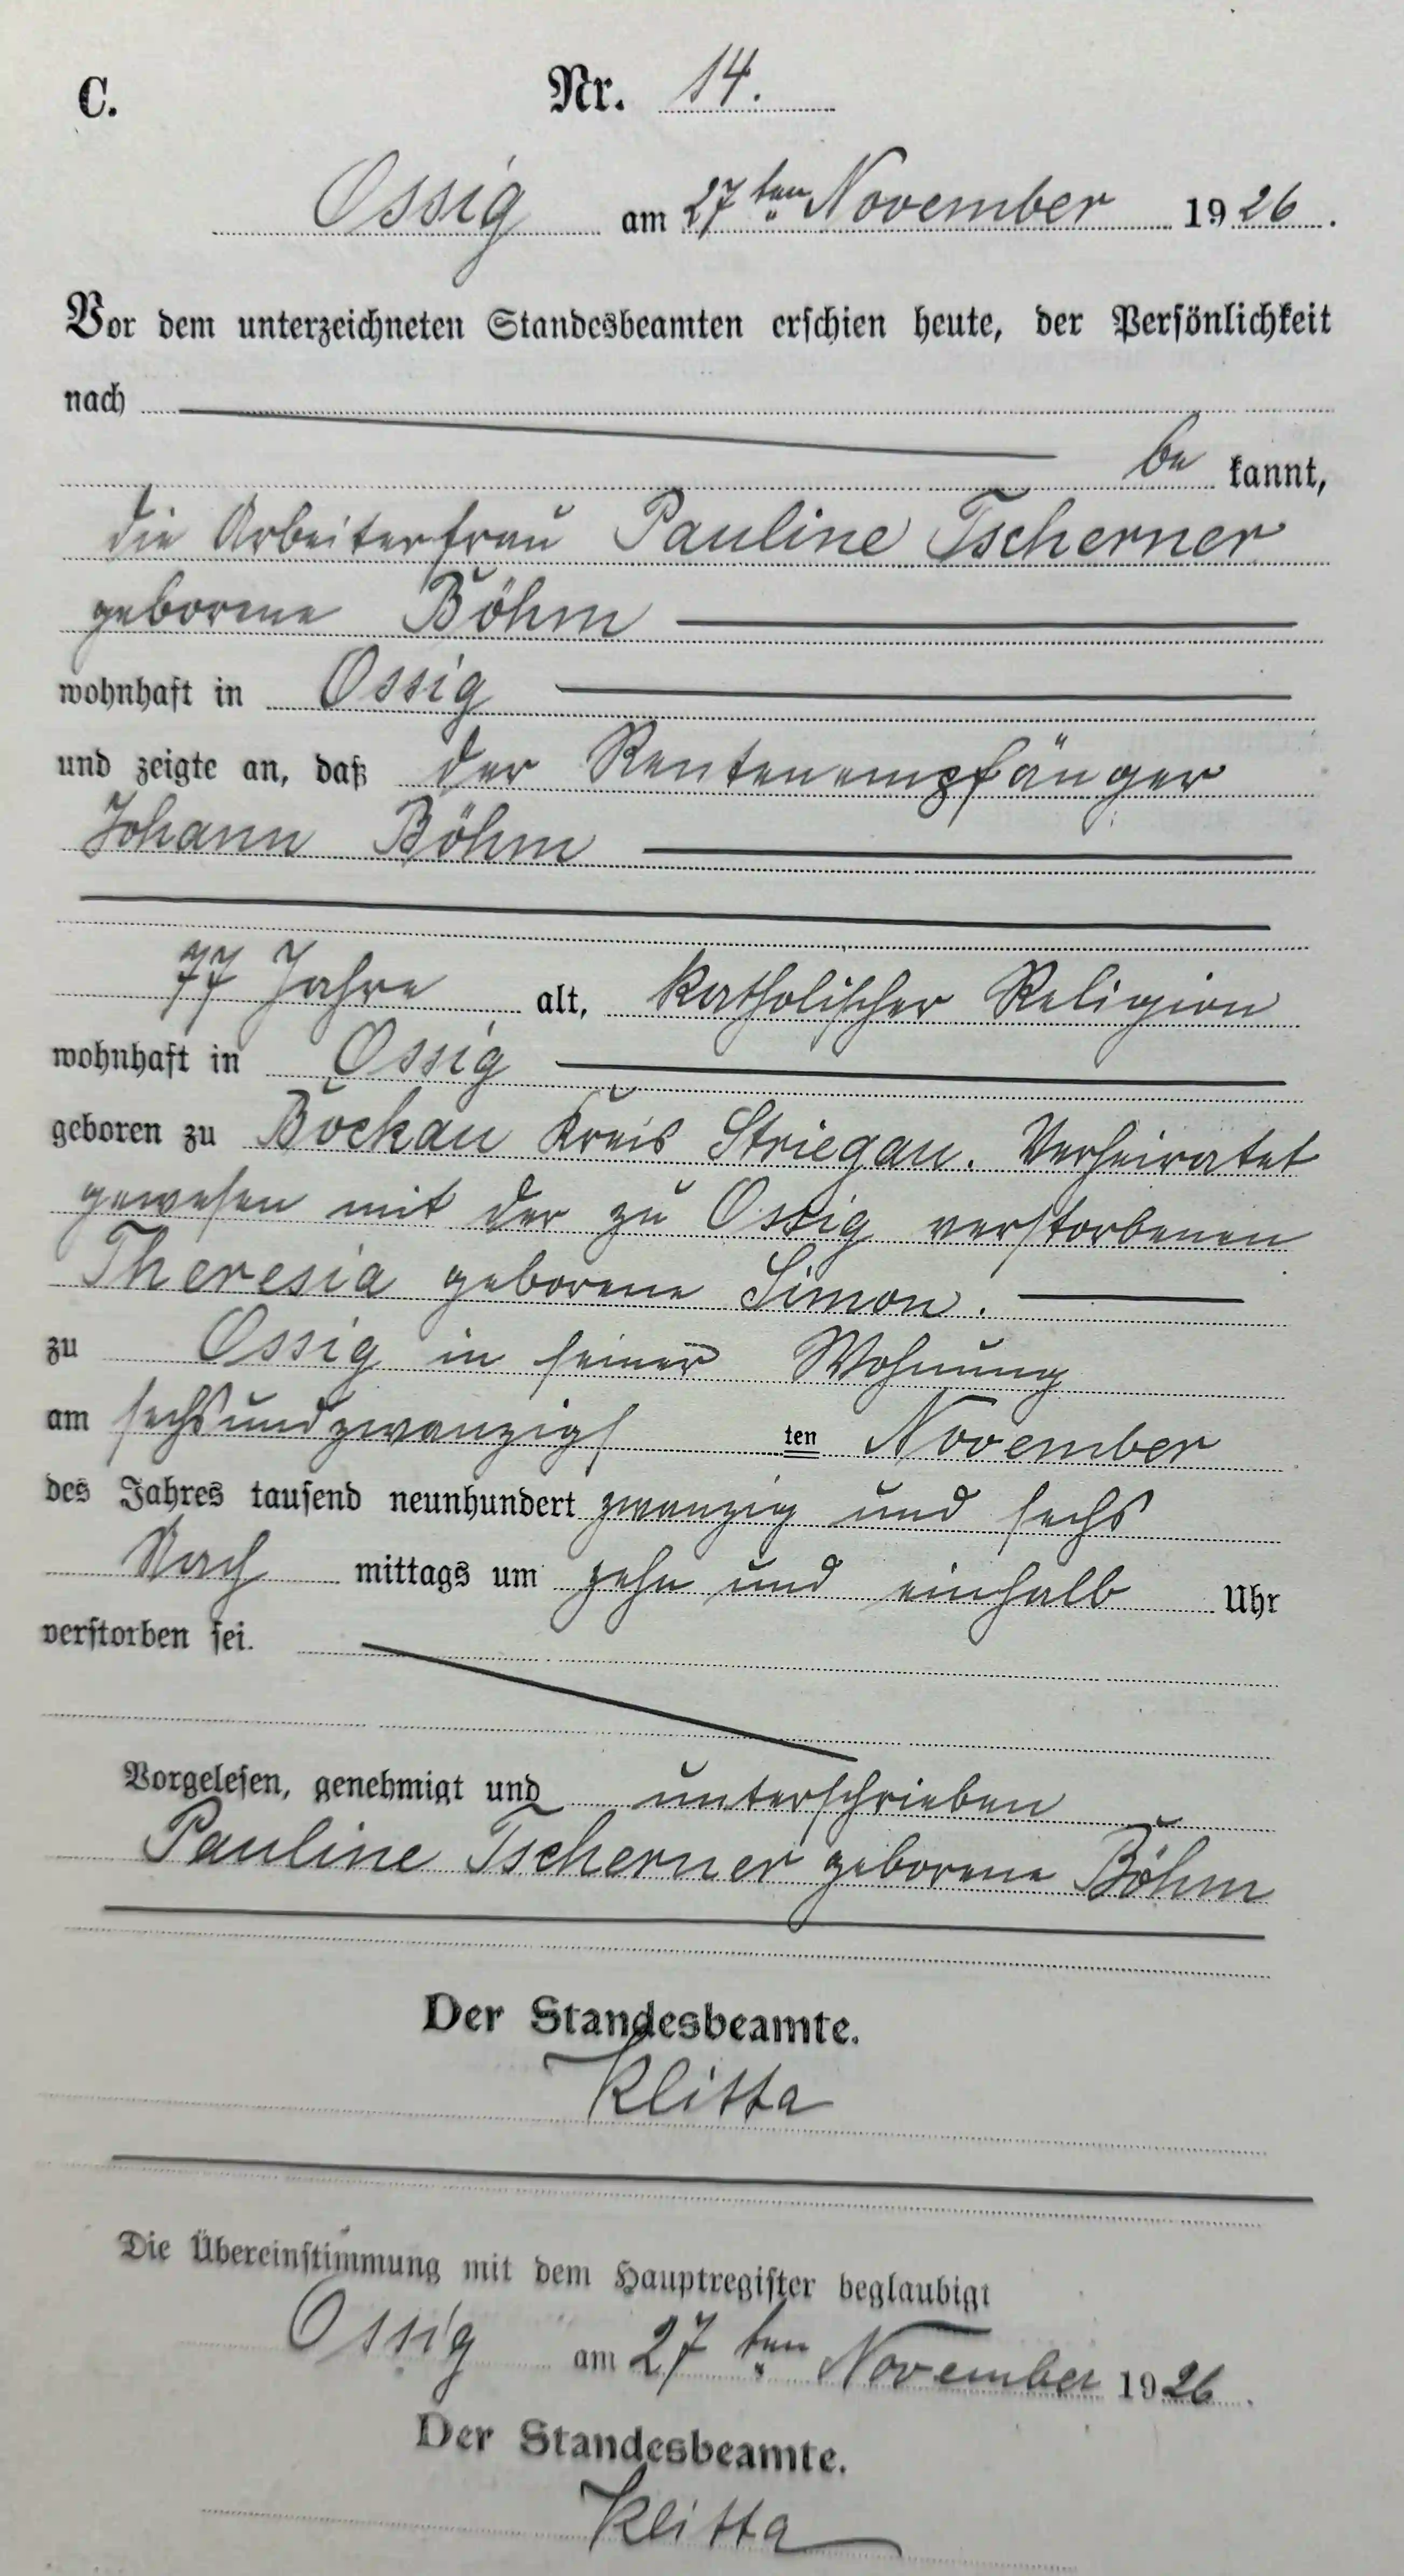 C. Nr. 14.
Ossig am 27ten November 1926.
Vor dem unterzeichneten Standesbeamten erschien heute, der Persönlichkeit
nach
be kannt,
die Arbeiterfrau Pauline Tscherner
geborene Böhm
wohnhaft in Ossig
und zeigte an, daß der Rentenempfänger
Johann Böhm
77 Jahre alt, katholischer Religion
wohnhaft in Ossig
geboren zu Bockau Kreis Striegau. Verheiratet
gewesen mit der zu Ossig verstorbenen
Theresia geborene Simon.
zu Ossig in seiner Wohnung
am sechsundzwanzigsten November
des Jahres tausend neunhundert zwanzig und sechs
Nach mittags um zehn und einhalb Uhr
verstorben sei.
Vorgelesen, genehmigt und unterschrieben
Pauline Tscherner geborene Böhm
Der Standesbeamte.
Klitta
Die Übereinstimmung mit dem Hauptregister beglaubigt
Ossig am 27ten November 1926.
Der Standesbeamte.
Klitta